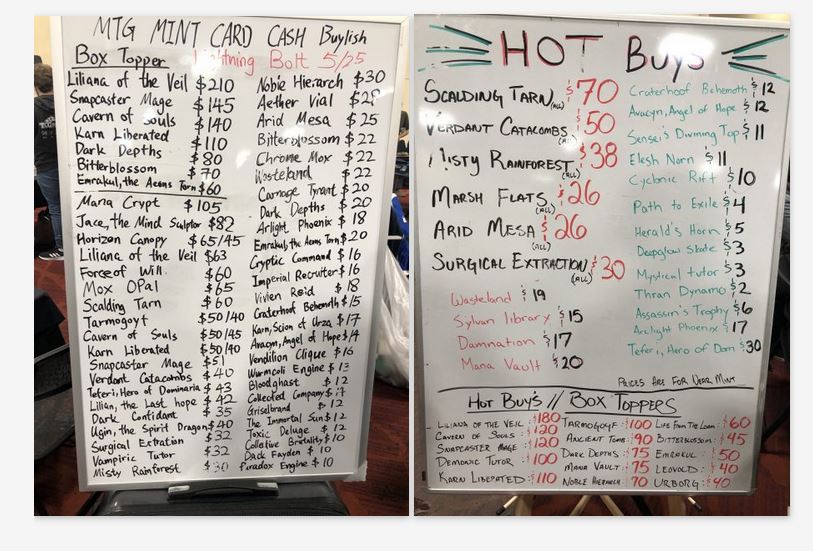 MTG MINT CARD CASH Buylish
Box Topper
Lightning Bolt 5/25
Liliana of the Veil $210
Snapcaster Mage $145
Cavern of Souls $140
Karn Liberated $110
Dark Depths $80
Bitterblossom $70
Emrakul, the Aeons Torn $60
Mana Crypt $105
Jace, the Mind Sculptor $82
Horizon Canopy $65/45
Liliana of the Veil $63
Force of Will $60
Mox OPal $65
Scalding Tarn $60
Tarmogoyf $50/40
Cavern of Souls $50/45
Karn Liberated $50/40
Snapcaster Mage $51
Verdant Catacombs $40
Teferi, Hero of Dominaria $43
Lilian, the Last hope $42
Dark Confidant $35
Ugin, the Spirit Dragon $40
Surgical Extration $32
Vampiric Tutor $32
Misty Rainforest $30
Noble Hierarch $30
Aether Vial $28
Arid Mesa $25
Bitterblossom $22
Chrome Mox $22
Wasteland $22
Carnage Tyrant $20
Dark Depths $20
Arlight Phoenix $18
Emrakul, the Aeons Torn $20
Cryptic Command $16
Imperial Recruiter $16
Vivien Reid $18
Craterhoof Behemoth $15
Karn, Scion of Urza $17
Avacyn, Angel of Hope $14
Vendilion Clique $16
Wurmcoil Engine $13
Bloodghast $12
Collected Company $14
Griselbrand $12
The Immortal Sun $12
Toxic Deluge $12
Collective Brutality $10
Dack Fayden $10
Paradox Engine $10
HOT Buys
SCALDING TARN (ALL) $70
VERDANT CATACOMBS (ALL) $50
MISTY RAINFOREST (ALL) $38
MARSH FLATS (ALL) $26
ARID MESA (ALL) $26
SURGICAL EXTRACTION (ALL) $30
Wasteland $19
Sylvan library $15
Damnation $17
Mana Vault $20
Craterhoof Behemoth $12
Avacyn, Angel of Hope $12
Sensei's Divining Top $11
Elesh Norn $11
Cyclonic Rift $10
Path to Exile $4
Herald's Horn $5
Deepglow Skate $3
Mystical tutor $3
Thran Dynamo $2
Assassin's Trophy $6
Arclight Phoenix $17
Teferi, Hero of Dom $30
PRICES ARE FOR NEAR MINT
HOT BUY'S // BOX TOPPERS
LILIANA OF THE VEIL: $180
CAVERN OF SOULS: $120
SNAPCASTER MAGE: $120
DEMONIC TUTOR: $100
KARN LIBERATED: $110
TARMOGOYF: $100
ANCIENT TOMB: 90
DARK DEPTHS: $75
MANA VAULT: $75
NOBLE HIERARCH: $70
LIFE FROM THE LOAM: $60
BITTERBLOSSOM: $45
EMRAKUL: $50
LEOVOLD: $40
URBORG: $40